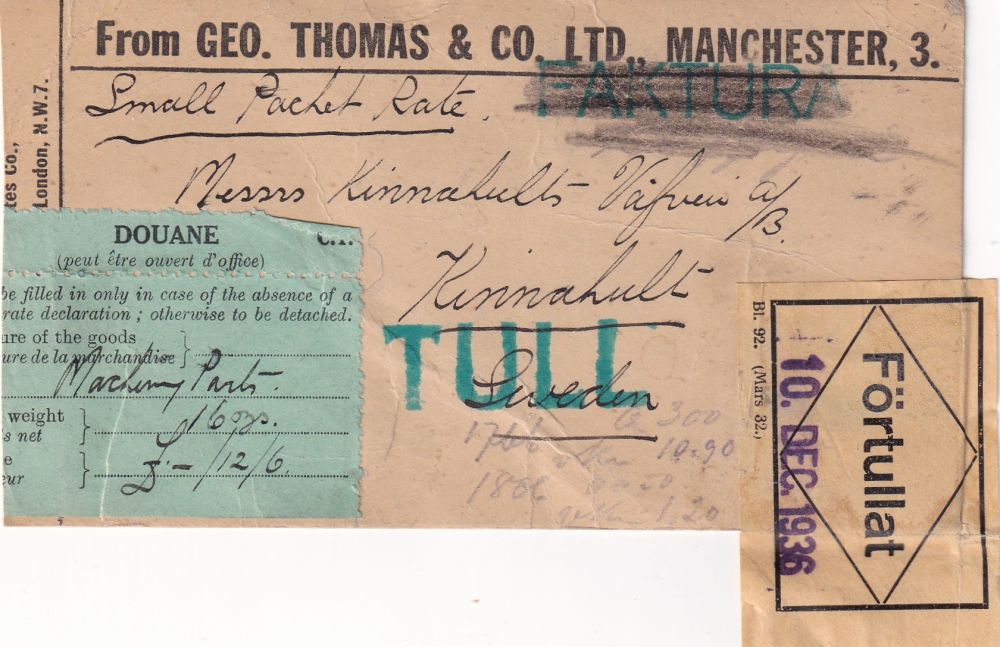 From GEO. THOMAS & CO. LTD., MANCHESTER, 3.
FAKTURA
Small Packet Rate.
tes Co.,
London, N.W.7.
Messrs Kinnahults Väfveri A/B.
Kinnahult
Sweden
TULL
DOUANE C.1.
(peut être ouvert d'office)
be filled in only in case of the absence of a
rate declaration ; otherwise to be detached.
ure of the goods
ure de la marchandise
Machinery Parts.
weight
s net
16 ozs.
e
eur
£ - /12/6.
300
10.90
1,20
Bl. 92. (Mars 32.)
Förtullat
10. DEC. 1936